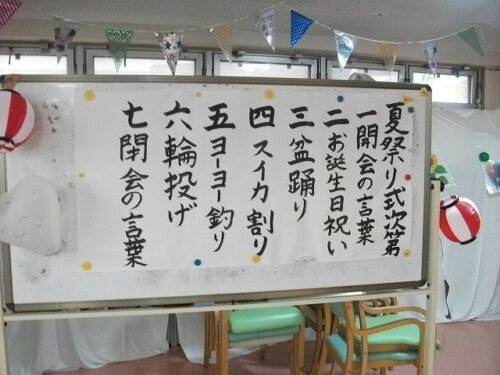 夏祭り式次第
一開会の言葉
二お誕生日祝い
三盆踊り
四スイカ割り
五ヨーヨー釣り
六輪投げ
七閉会の言葉